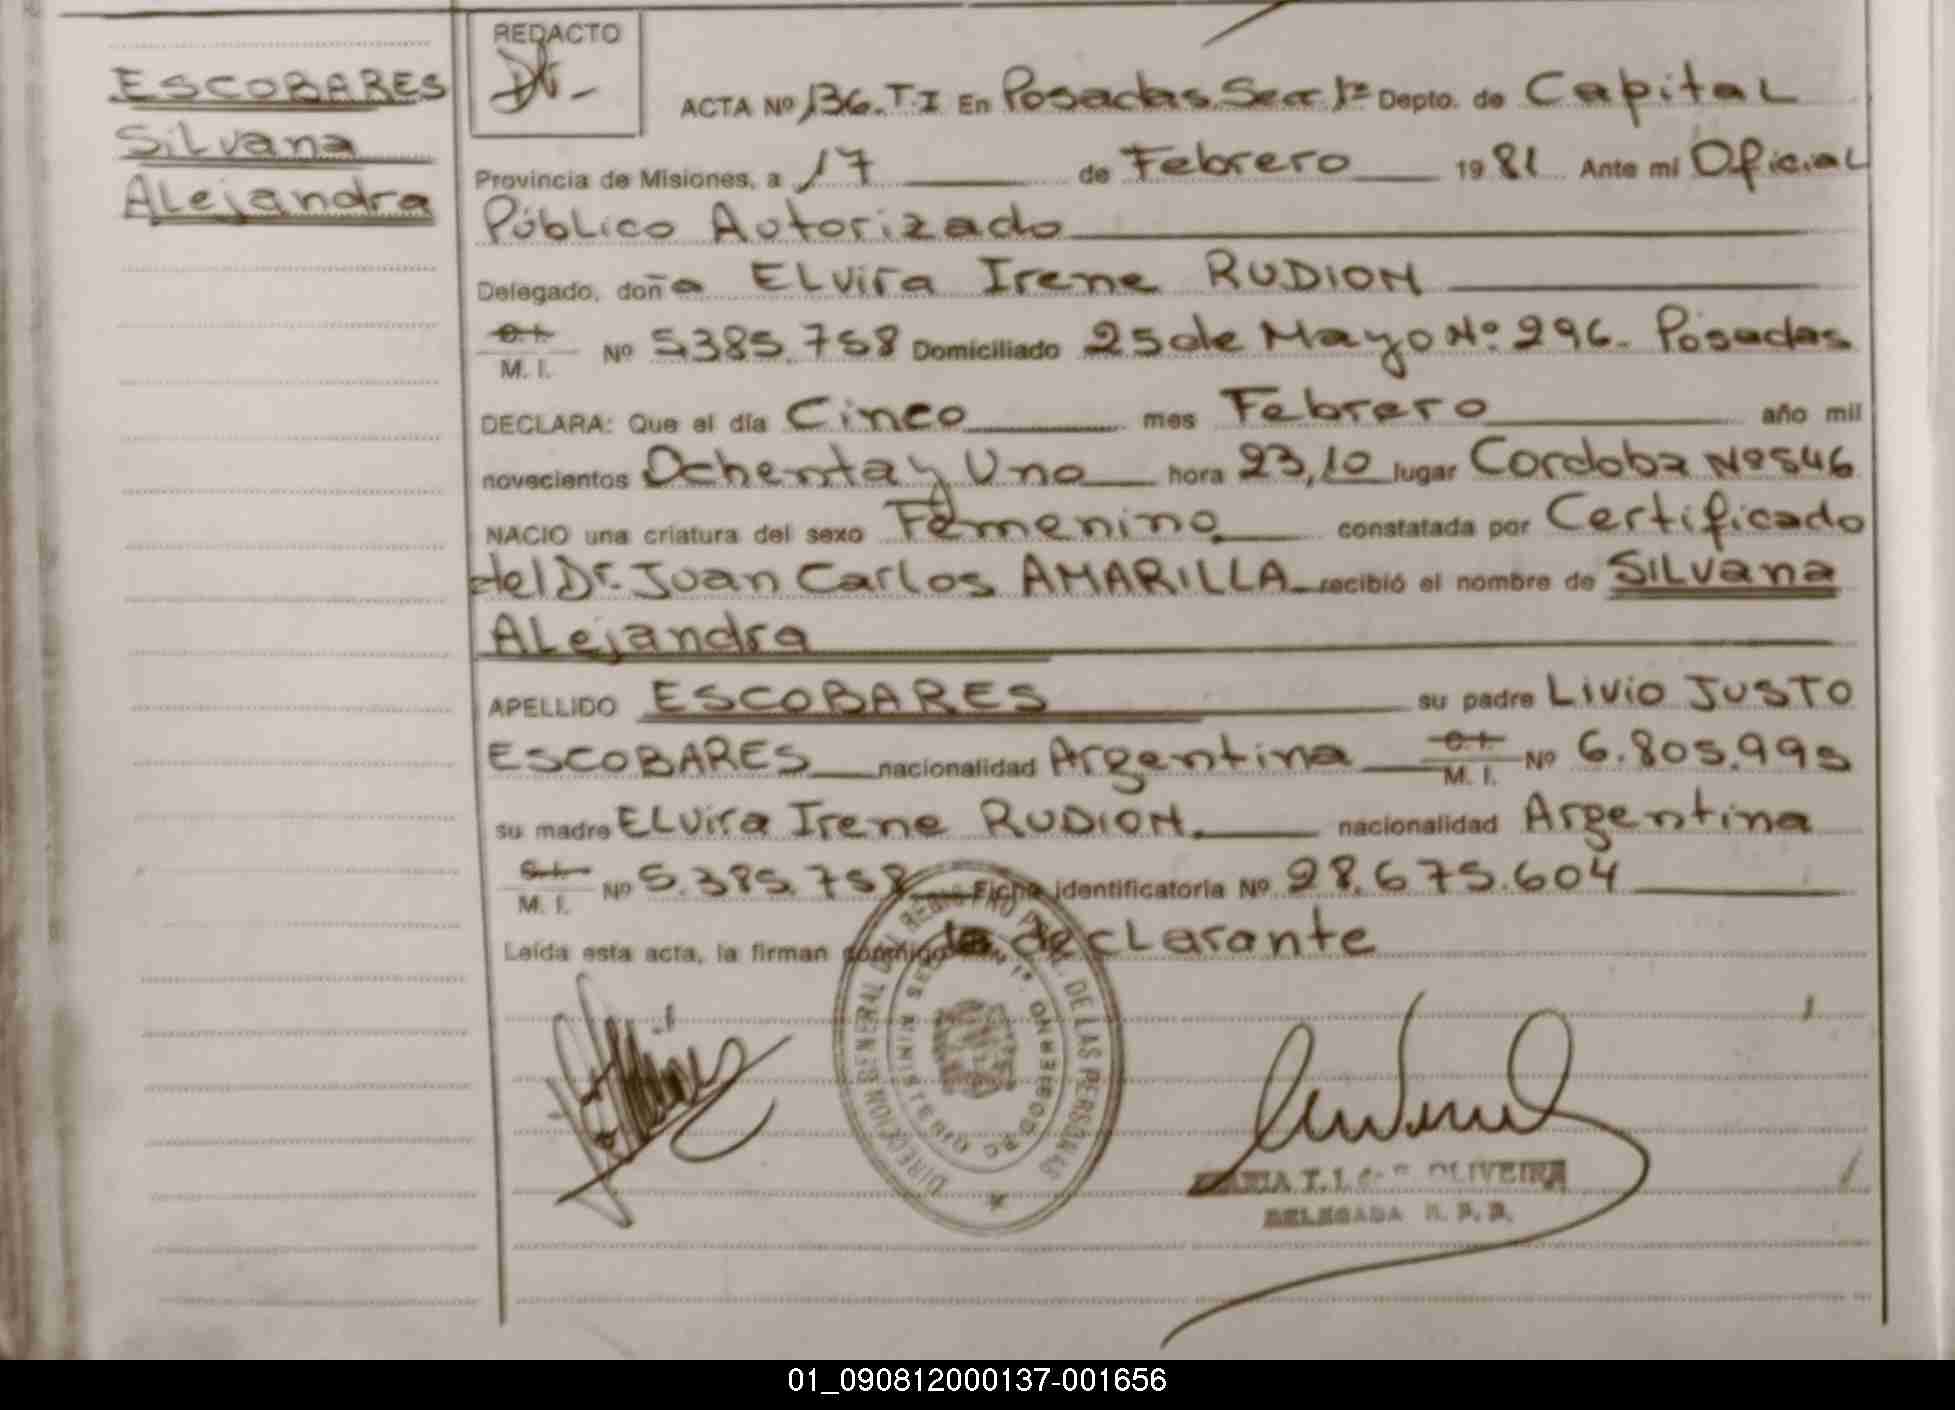 ESCOBARES
Silvana
Alejandra
REDACTO
ACTA Nº 136.T.I En Posadas. Secc 1ª Depto. de Capital
Provincia de Misiones, a 17 de Febrero 1981 Ante mi Oficial
Público Autorizado
Delegado, doña Elvira Irene RUDION
C.I.
M. I. Nº 5.385.758 Domiciliado 25 de Mayo Nº 296. Posadas
DECLARA: Que el día Cinco mes Febrero año mil
novecientos Ochenta y Uno hora 23,10 lugar Cordoba Nº 546
NACIO una criatura del sexo Femenino constatada por Certificado
del Dr. Juan Carlos AMARILLA recibió el nombre de Silvana
Alejandra
APELLIDO ESCOBARES su padre Livio JUSTO
ESCOBARES nacionalidad Argentina C.I. M. I. Nº 6.805.995
su madre Elvira Irene RUDION. nacionalidad Argentina
C.I.
M. I. Nº 5.385.758 Ficha identificatoria Nº 28.675.604
Leída esta acta, la firman conmigo la declarante
DIRECCION GENERAL DEL REGISTRO DE LAS PERSONAS
MINISTERIO GOBIERNO
MARIA T. OLIVEIRA
DELEGADA
01_090812000137-001656